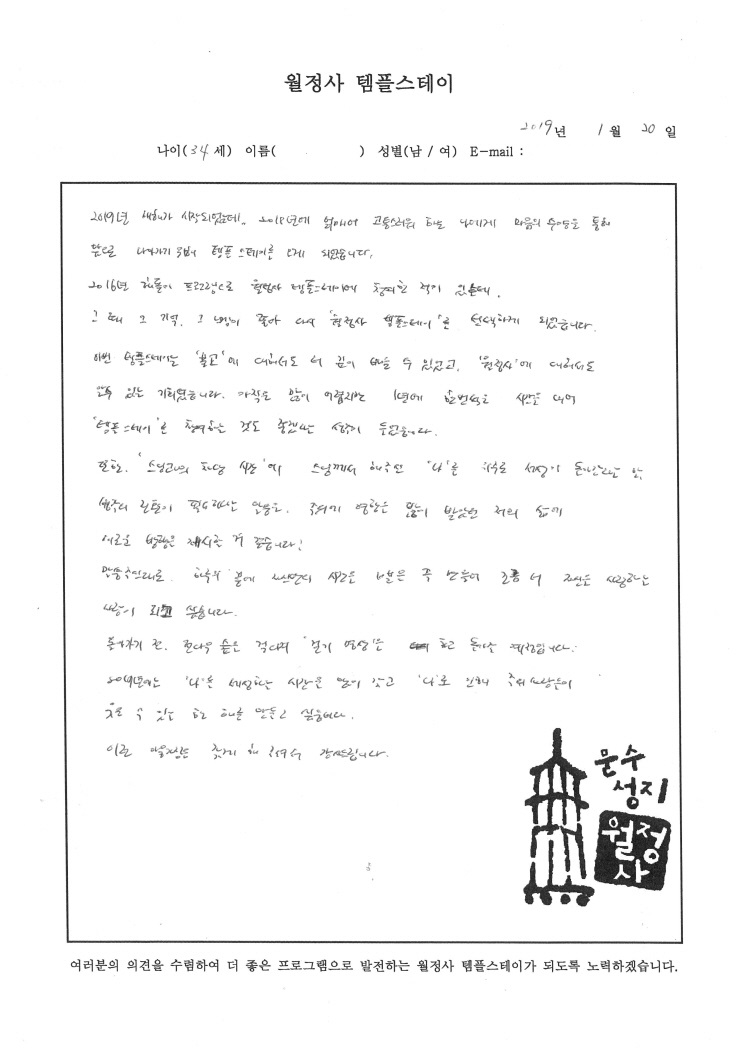 월정사 템플스테이
2019년 1월 20일
나이(34세) 이름( ) 성별(남 / 여) E-mail :
2019년 새해가 시작되었는데.. 2018년에 고통스러워 하는 나에게 마음의 수양을 통해
앞으로 나아가기 위해 템플스테이를 오게 되었습니다.
2016년 해돋이 프로그램으로 월정사 템플스테이에 참여한 적이 있는데,
그 때 그 기억, 그 느낌이 좋아 다시 '월정사 템플스테이'를 선택하게 되었습니다.
이번 템플스테이는 '불교'에 대해서도 더 깊이 배울 수 있었고, '월정사'에 대해서도
알 수 있는 기회였습니다. 아직도 많이 어렵지만 1년에 한번씩은 시간을 내어
'템플스테이'를 참여하는 것도 좋겠다는 생각이 들었습니다.
또한, '스님과의 차담 시간'에 스님께서 해주신 '나'를 위주로 세상이 돌아간다는 말,
생각의 전환이 필요하다는 말씀은, 주위의 영향을 많이 받았던 저의 삶에
새로운 방향을 제시해 준 거 같습니다!
말씀주신대로, 하루의 끝에 시간을 조금 더 자신을 사랑하는
사람이 되고 싶습니다.
돌아가기 전, 전나무 숲을 걸으며 '걷기 명상'을 하고 돌아갈 예정입니다.
2019년에는 '나'를 시간을 많이 갖고 '나'로 인해 주위 사람들이
웃을 수 있는 한 해를 만들고 싶습니다.
이런 마음가짐을 갖게 해 주셔서 감사드립니다.
문수
성지
월정
사
여러분의 의견을 수렴하여 더 좋은 프로그램으로 발전하는 월정사 템플스테이가 되도록 노력하겠습니다.